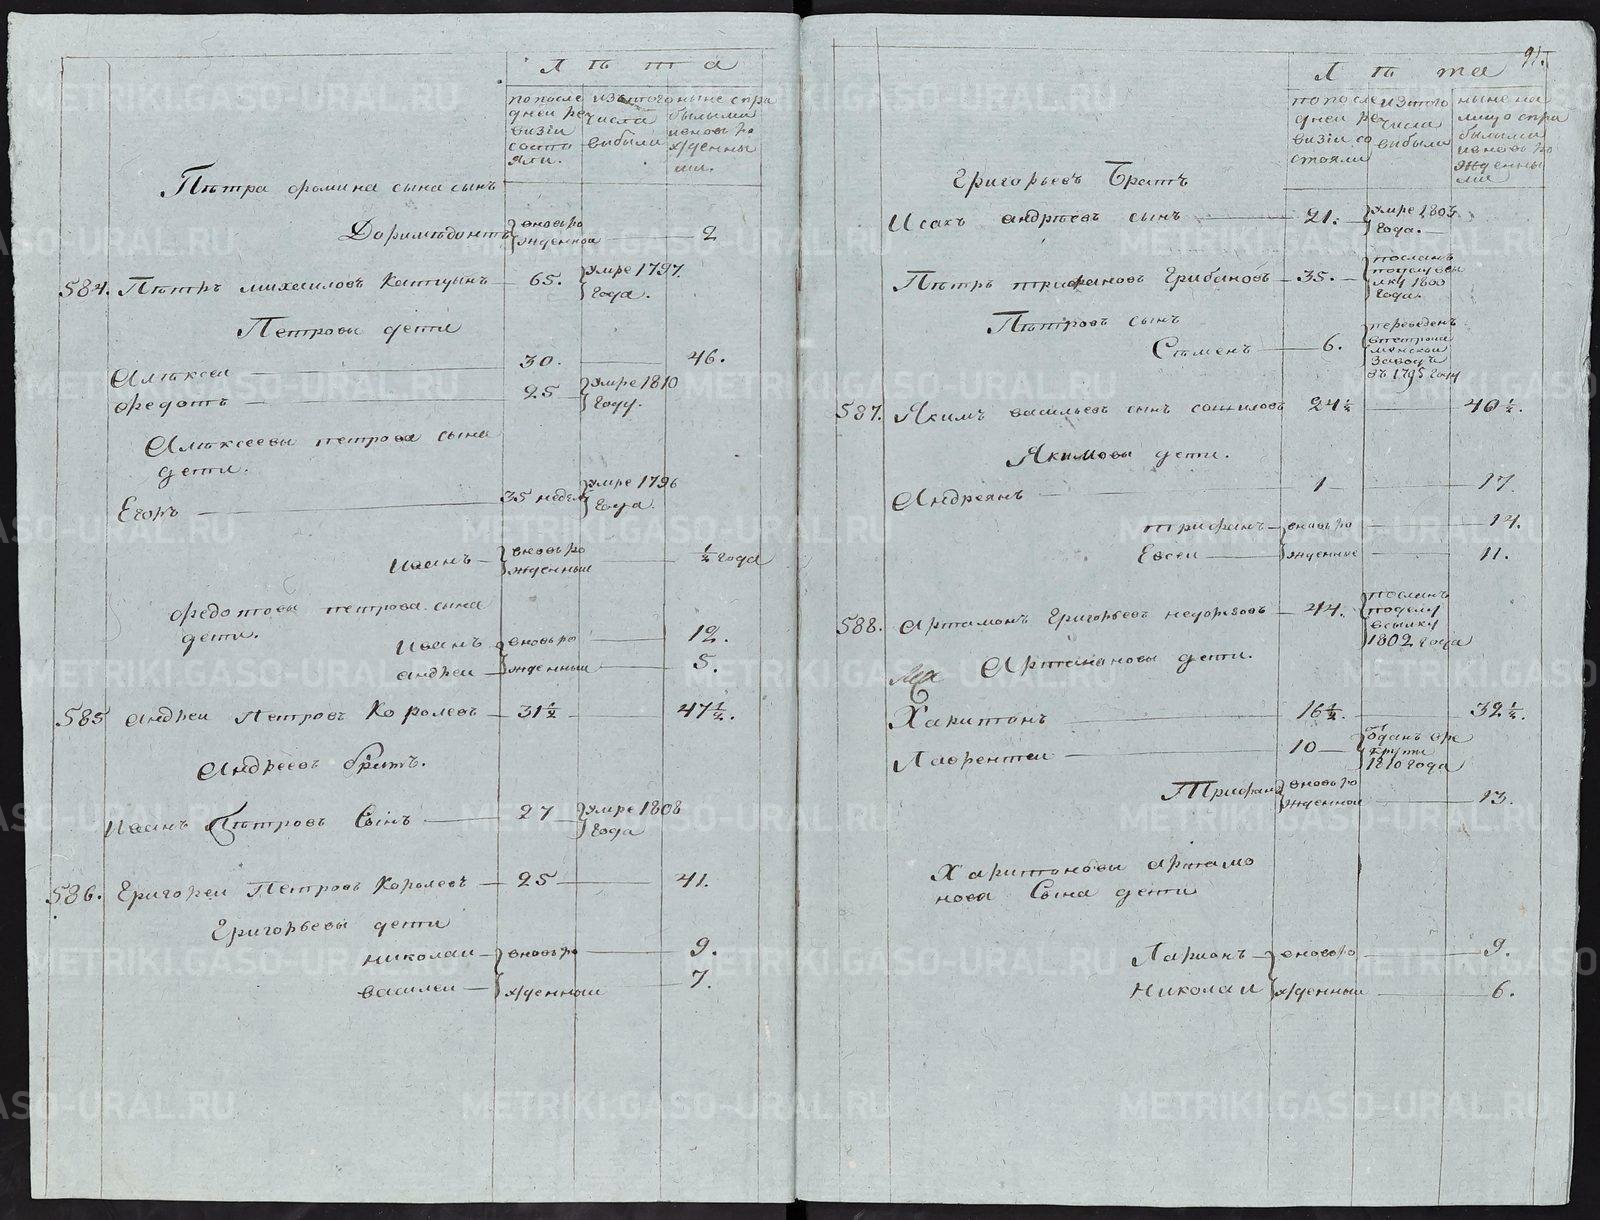 Лѣта
по после
дней ре
визіи
состо
яли.
изътого
числа
выбыли
ныне спри
былыми
ивновь ро
жденны
ми.
Пѣтра фомина сына сынъ
Доримѣдонтъ вновь ро
жденной 2
584. Пѣтръ михаиловъ 65. умре 1797.
года.
Петровы дети
Алѣксеи 30. 46.
Федотъ 25 умре 1810
году.
Алѣксеевы петрова сына
дети.
Егоръ 35 недель умре 1796
года.
Иванъ вновь ро
жденный ½ года
Федотовы петрова сына
дети.
Иванъ вновь ро 12.
андреи жденныи 5.
585 андреи Петровъ Королевъ 31½ 47½.
Андреевъ братъ.
Иванъ Пѣтровъ Сынъ 27 умре 1808
года
586. Григореи Петровъ Королевъ 25 41.
Григорьевы дети
николаи вновь ро 9.
василеи жденныи 7.
91.
Лѣта
по после
дней ре
визіи со
стояли
изтого
числа
выбыли
ныне на
лицо спри
былыми
ивновь ро
жденны
ми
Григорьевъ Братъ
Исакъ андрѣевъ сынъ 21. умре 1805
года.
Пѣтръ трифановъ Грибановъ 35. посланъ
1800
года.
Пѣтровъ сынъ
Сѣменъ 6. переведенъ
заводъ
въ 1795 году
587. Якимъ васильевъ сынъ 24½ 40½.
Якимовы дети.
Андреянъ 1 17.
трифанъ вновь ро 14.
Евсеи жденные 11.
588. Артамонъ Григорьевъ 44. посланъ
ссылку
1802 года
Артамановы дети.
Харитонъ 16½. 32½.
Лаврентеи 10 Отданъ вре
круты
1810 года
Трифанъ вновь ро
жденнои 13.
Харитоновы артамо
нова Сына дети
Ларионъ вновь ро 9.
Николаи жденныи 6.
METRIKI.GASO-URAL.RU